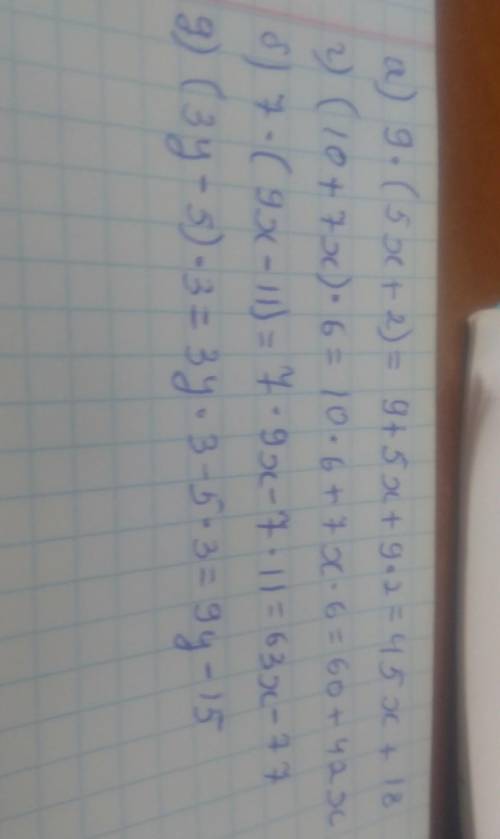 а) 9·(5x+2)=9+5x+9·2=45x+18
г) (10+7x)·6=10·6+7x·6=60+42x
б) 7·(9x-11)=7·9x-7·11=63x-77
д) (3y-5)·3=3y·3-5·3=9y-15